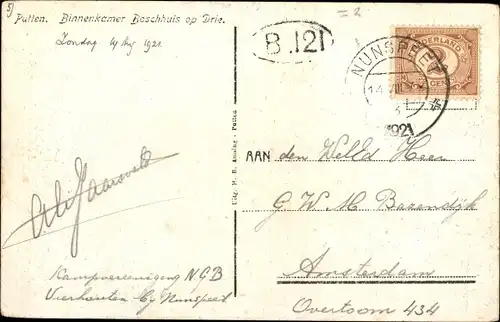 5)
Putten. Binnenkamer Boschhuis op Drie.
Zondag 14 Aug 1921.
= 2
B.121
NUNSPEET
14 VIII
1921
NEDERLAND
CENT
Uitg. P. B. Assing - Putten
AAN den Weled Heer
G W M Bazendijk
Amsterdam
Overtoom 434
Kampvereeniging N C B
Vierhouten bij Nunspeet